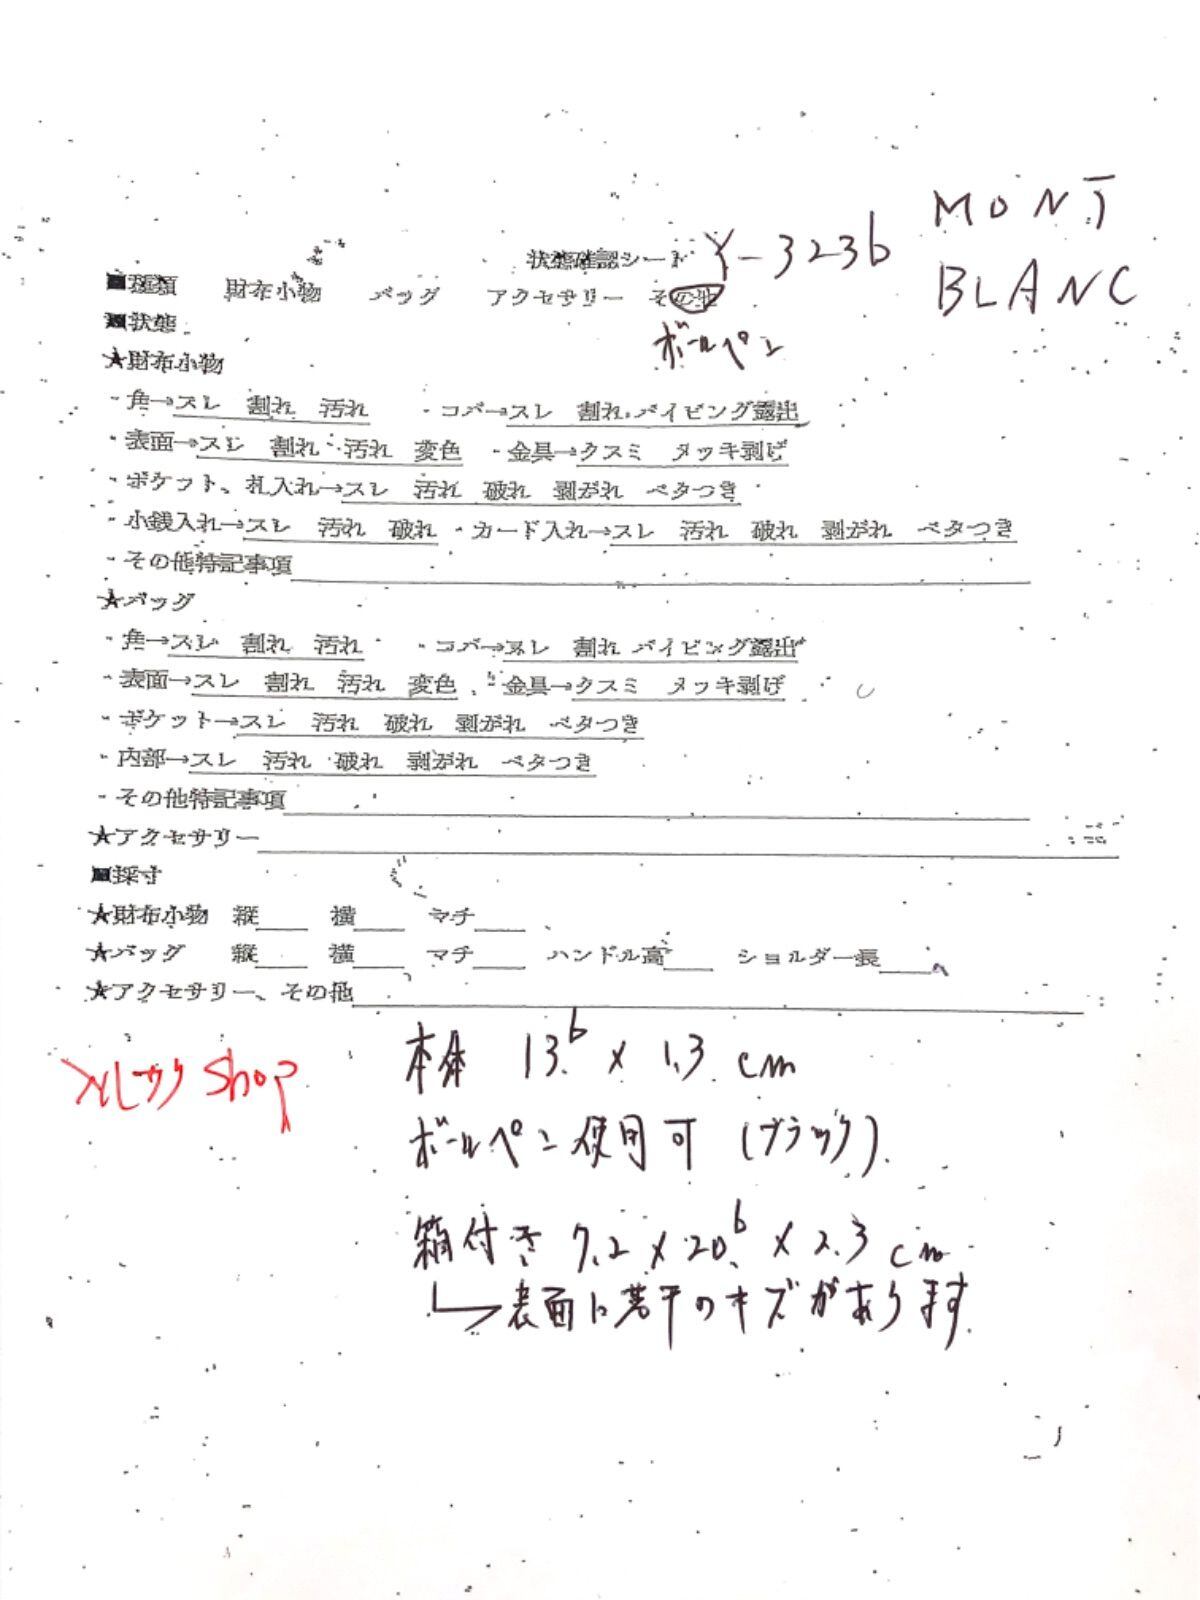 状態確認シート Y-3236 MONT
BLANC
■種類 財布小物 バッグ アクセサリー その他
ボールペン
■状態
★財布小物
・角→スレ 割れ 汚れ ・コバ→スレ 割れ パイピング露出
・表面→スレ 割れ 汚れ 変色 ・金具→クスミ メッキ剥げ
・ポケット、札入れ→スレ 汚れ 破れ 剥がれ ベタつき
・小銭入れ→スレ 汚れ 破れ ・カード入れ→スレ 汚れ 破れ 剥がれ ベタつき
・その他特記事項
★バッグ
・角→スレ 割れ 汚れ ・コバ→スレ 割れ パイピング露出
・表面→スレ 割れ 汚れ 変色 ・金具→クスミ メッキ剥げ
・ポケット→スレ 汚れ 破れ 剥がれ ベタつき
・内部→スレ 汚れ 破れ 剥がれ ベタつき
・その他特記事項
★アクセサリー
■採寸
★財布小物 縦 横 マチ
★バッグ 縦 横 マチ ハンドル高 ショルダー長
★アクセサリー、その他
本体 13.6 x 1.3 cm
shop
ボールペン使用可 (ブラック)
箱付き 7.2 x 20.6 x 2.3 cm
→表面に若干のキズがあります